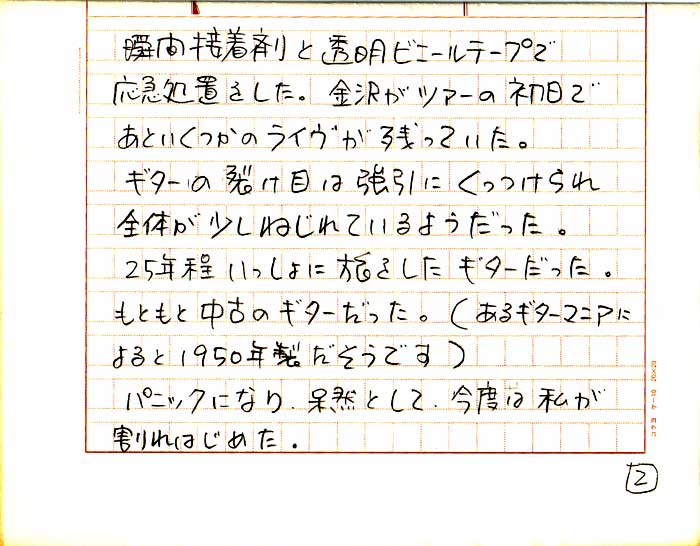 瞬間接着剤と透明ビニールテープで
応急処置をした。金沢がツァーの初日で
あといくつかのライヴが残っていた。
ギターの裂け目は強引にくっつけられ
全体が少しねじれているようだった。
25年程いっしょに旅をしたギターだった。
もともと中古のギターだった。(あるギターマニアに
よると1950年製だそうです)
パニックになり、呆然として、今度は私が
割れはじめた。
コクヨ ケ-10 20×20
2